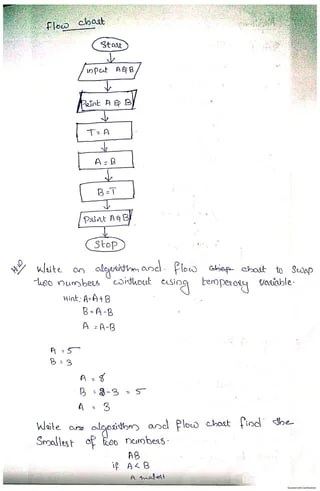 Flow chart
Start
input A&B
Print A & B
T=A
A=B
B=T
Print A&B
Stop
Write an algorithm and flow chart to swap
two numbers without using temporory variable.
Hint: A=A+B
B=A-B
A=A-B
A=5
B=3
A=8
B=8-3=5
A=3
Write an algorithm and flow chart find the
Smallest of two numbers.
AB
if A<B
A